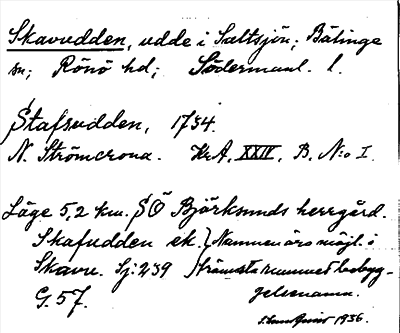 Skavudden, udde i Saltsjön; Bälinge
sn; Rönö hd; Södermanl. l.
Stafsudden, 1734.
N. Strömcrona. KrA, XXIV, B. N:o I.
Läge 5,2 km. SÖ Björksunds herrgård.
Skafudden ek. } Namnen äro möjl. i
Skavu. Sj: 239 } främsta rummet bebygg-
G. 57. gelsenamn.
1936.